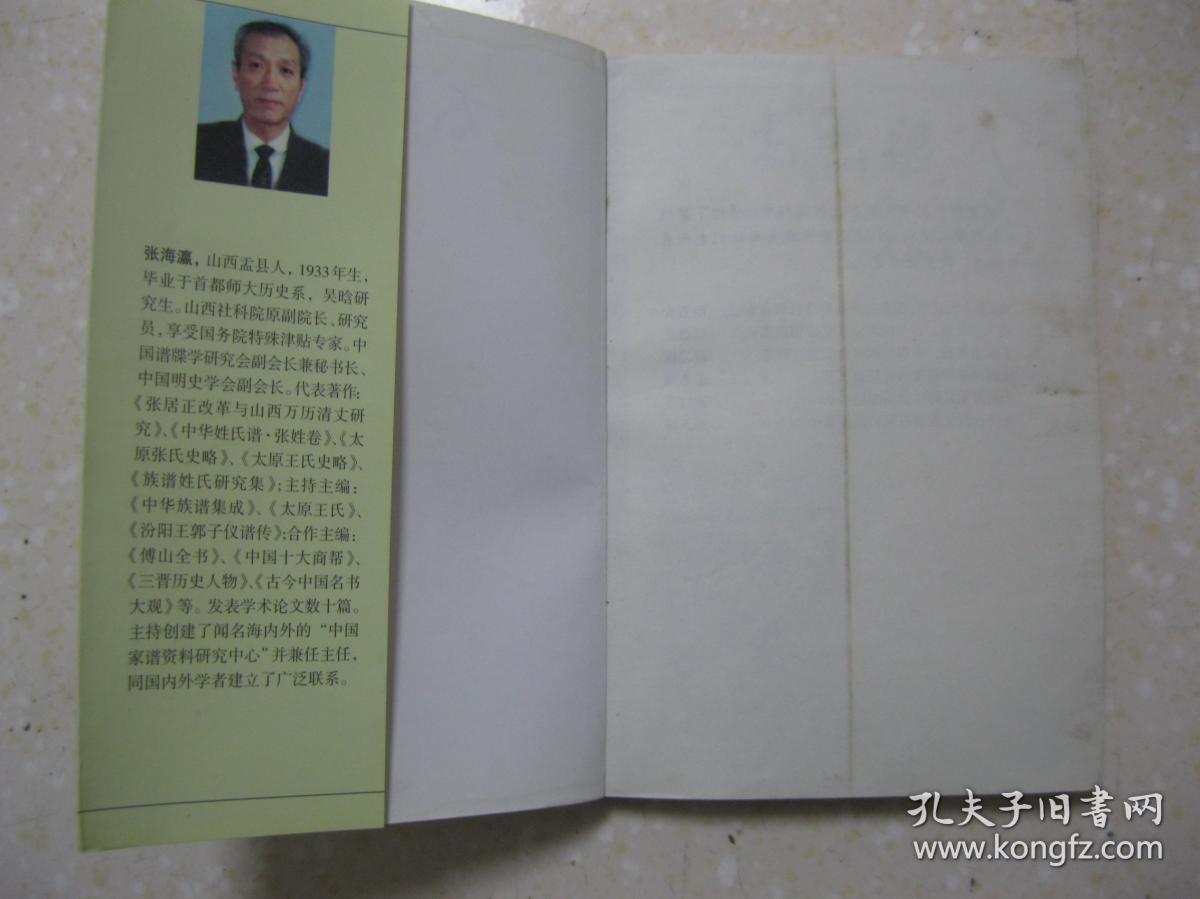 张海瀛，山西盂县人，1933年生，
毕业于首都师大历史系，吴晗研
究生。山西社科院原副院长、研究
员，享受国务院特殊津贴专家。中
国谱牒学研究会副会长兼秘书长、
中国明史学会副会长。代表著作：
《张居正改革与山西万历清丈研
究》、《中华姓氏谱·张姓卷》、《太
原张氏史略》、《太原王氏史略》、
《族谱姓氏研究集》；主持主编：
《中华族谱集成》、《太原王氏》、
《汾阳王郭子仪谱传》；合作主编：
《傅山全书》、《中国十大商帮》、
《三晋历史人物》、《古今中国名书
大观》等。发表学术论文数十篇。
主持创建了闻名海内外的“中国
家谱资料研究中心”并兼任主任，
同国内外学者建立了广泛联系。
孔夫子旧书网
www.kongfz.com